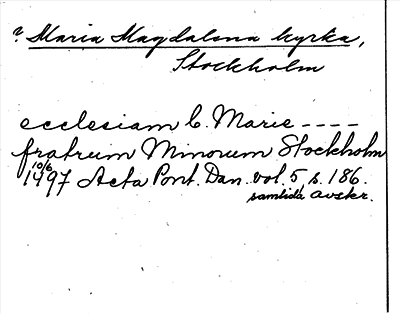 ? Maria Magdalena kyrka,
Stockholm
ecclesiam b. Marie ----
fratrum Minorum Stockholm
10/6
1497 Acta Pont. Dan. vol. 5, s. 186.
samtida avskr.